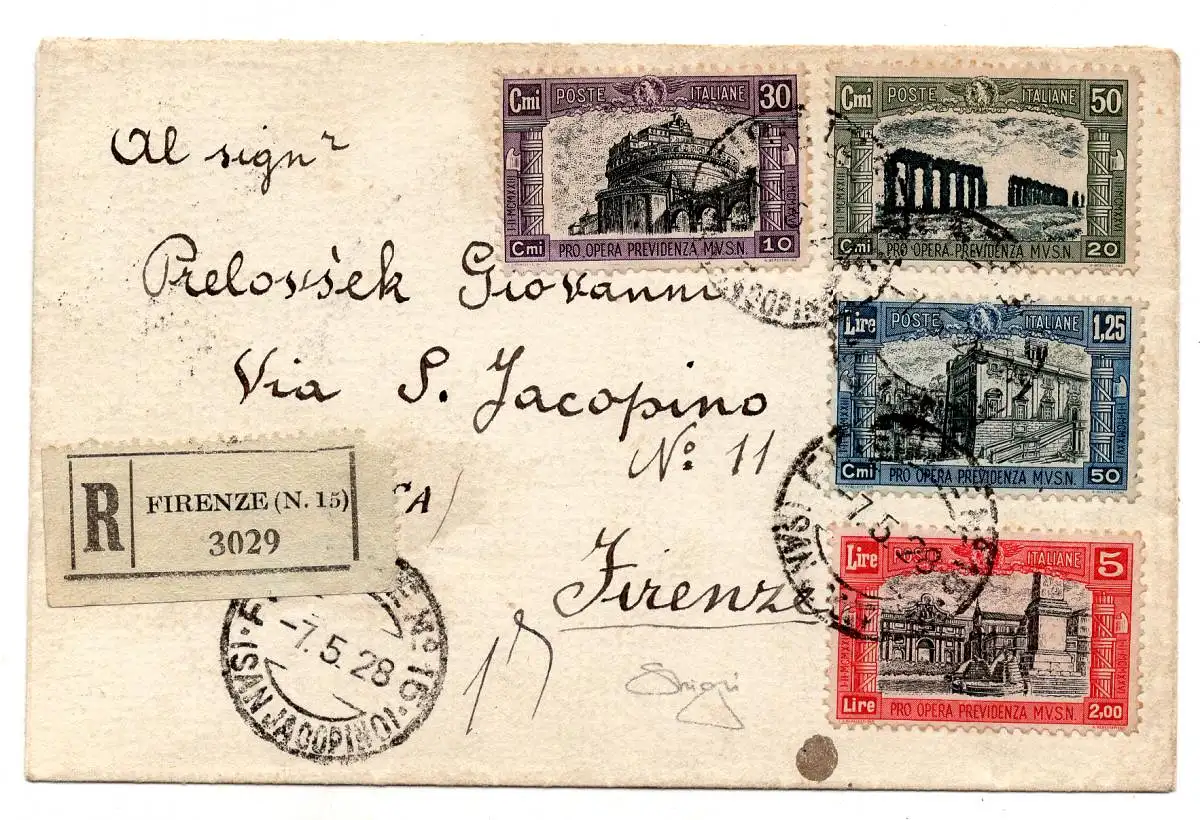 Al signr
Prelovšek Giovanni
Via S. Jacopino
No. 11
Firenze
R
FIRENZE (N. 15)
3029
CA
-7.5.28
No 16
(SAN JACOPINO)
17
Cmi POSTE ITALIANE 30
Cmi PRO OPERA PREVIDENZA M.V.S.N. 10
Cmi POSTE ITALIANE 50
Cmi PRO OPERA PREVIDENZA M.V.S.N. 20
Lire POSTE ITALIANE 1,25
Cmi PRO OPERA PREVIDENZA M.V.S.N. 50
-7.5.28
(SAN
Lire ITALIANE 5
Lire PRO OPERA PREVIDENZA M.V.S.N. 2,00